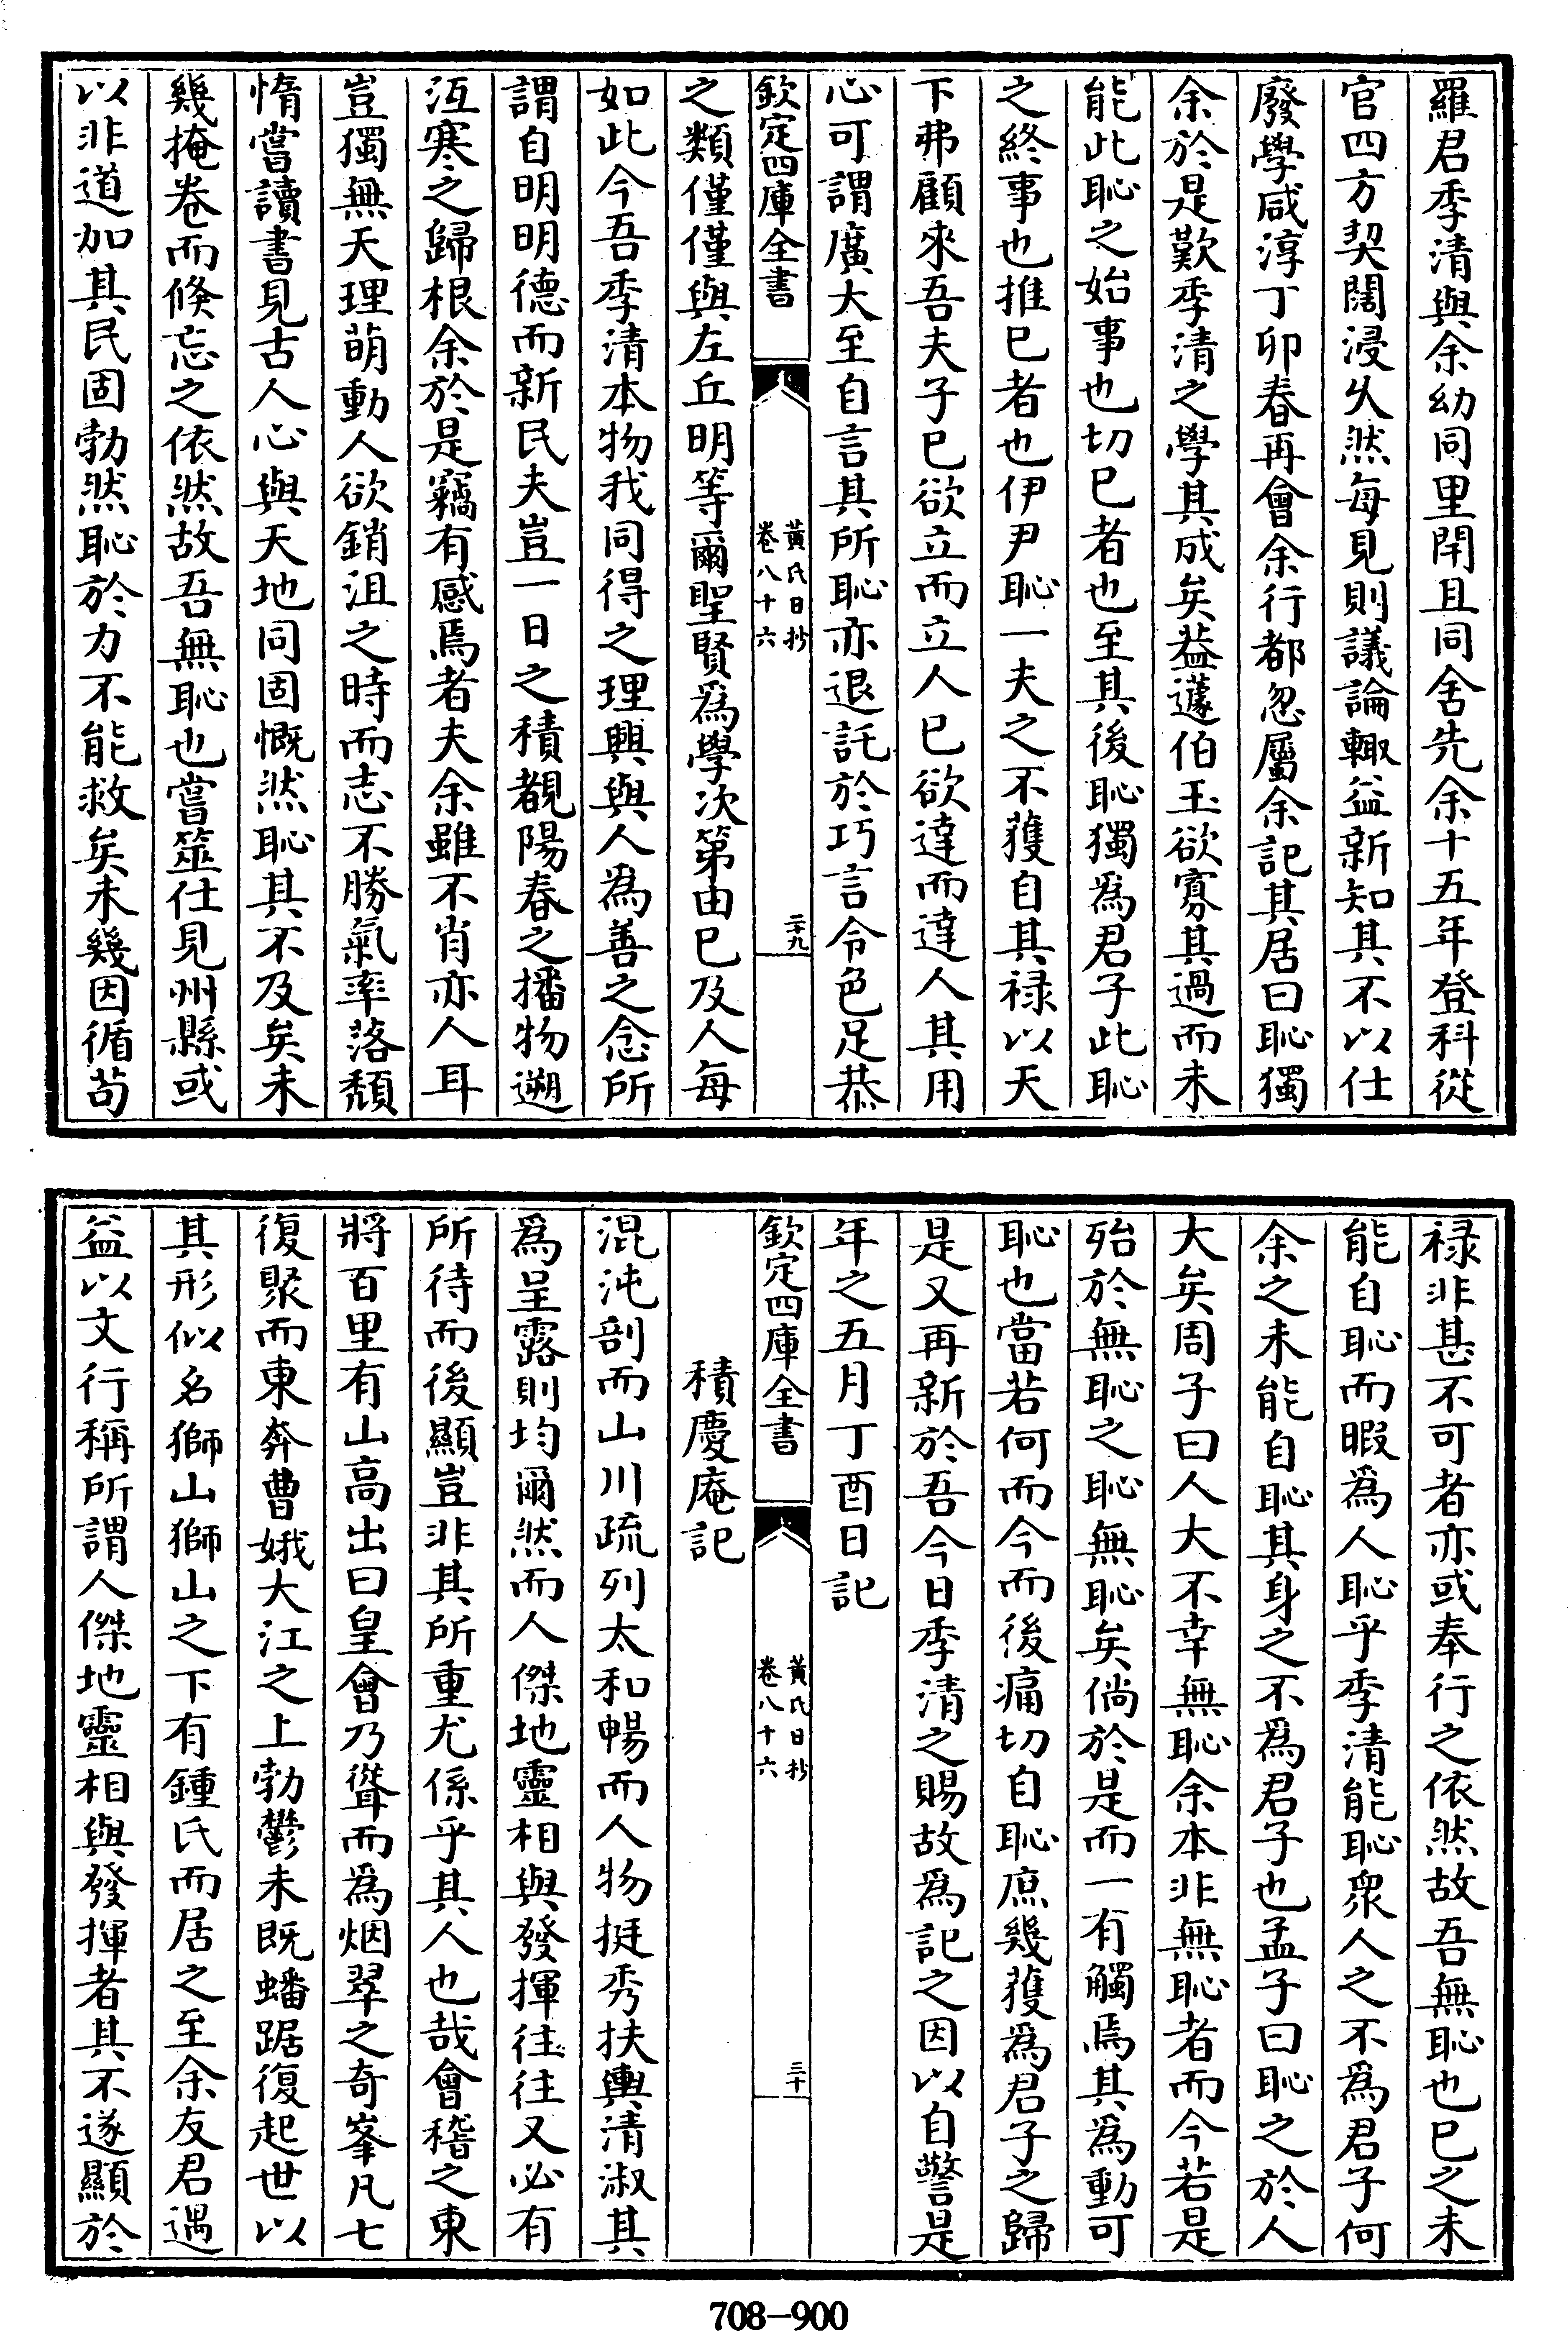 羅君季清與余幼同里閈且同舍先余十五年登科從
官四方契闊浸久然每見則議論輙益新知其不以仕
廢學咸淳丁卯春再會余行都忽屬余記其居曰恥獨
余於是歎季清之學其成矣葢蘧伯玉欲寡其過而未
能此恥之始事也切已者也至其後恥獨為君子此恥
之終事也推已者也伊尹恥一夫之不獲自其禄以天
下弗顧來吾夫子已欲立而立人已欲達而達人其用
心可謂廣大至自言其所恥亦退託於巧言令色足恭
欽定四庫全書
黄氏日抄
卷八十六
二十九
之類僅僅與左丘明等爾聖賢為學次第由已及人每
如此今吾季清本物我同得之理興與人為善之念所
謂自明明德而新民夫豈一日之積覩陽春之播物遡
沍寒之歸根余於是竊有感焉者夫余雖不肖亦人耳
豈獨無天理萌動人欲銷沮之時而志不勝氣率落頽
惰嘗讀書見古人心與天地同固慨然恥其不及矣未
幾掩卷而倐忘之依然故吾無恥也嘗筮仕見州縣或
以非道加其民固勃然恥於力不能救矣未幾因循茍
禄非甚不可者亦或奉行之依然故吾無恥也已之未
能自恥而暇為人恥乎季清能恥衆人之不為君子何
余之未能自恥其身之不為君子也孟子曰恥之於人
大矣周子曰人大不幸無恥余本非無恥者而今若是
殆於無恥之恥無恥矣倘於是而一有觸焉其為動可
恥也當若何而今而後痛切自恥庶幾獲為君子之歸
是又再新於吾今日季清之賜故為記之因以自警是
年之五月丁酉日記
欽定四庫全書
黄氏日抄
卷八十六
三十
積慶庵記
混沌剖而山川疏列太和暢而人物挺秀扶輿清淑其
為呈露則均爾然而人傑地靈相與發揮往往又必有
所待而後顯豈非其所重尤係乎其人也哉會稽之東
將百里有山高出曰皇會乃聳而為烟翠之奇峯凡七
復聚而東奔曹娥大江之上勃鬱未既蟠踞復起世以
其形似名獅山獅山之下有鍾氏而居之至余友君遇
益以文行稱所謂人傑地靈相與發揮者其不遂顯於
708-900